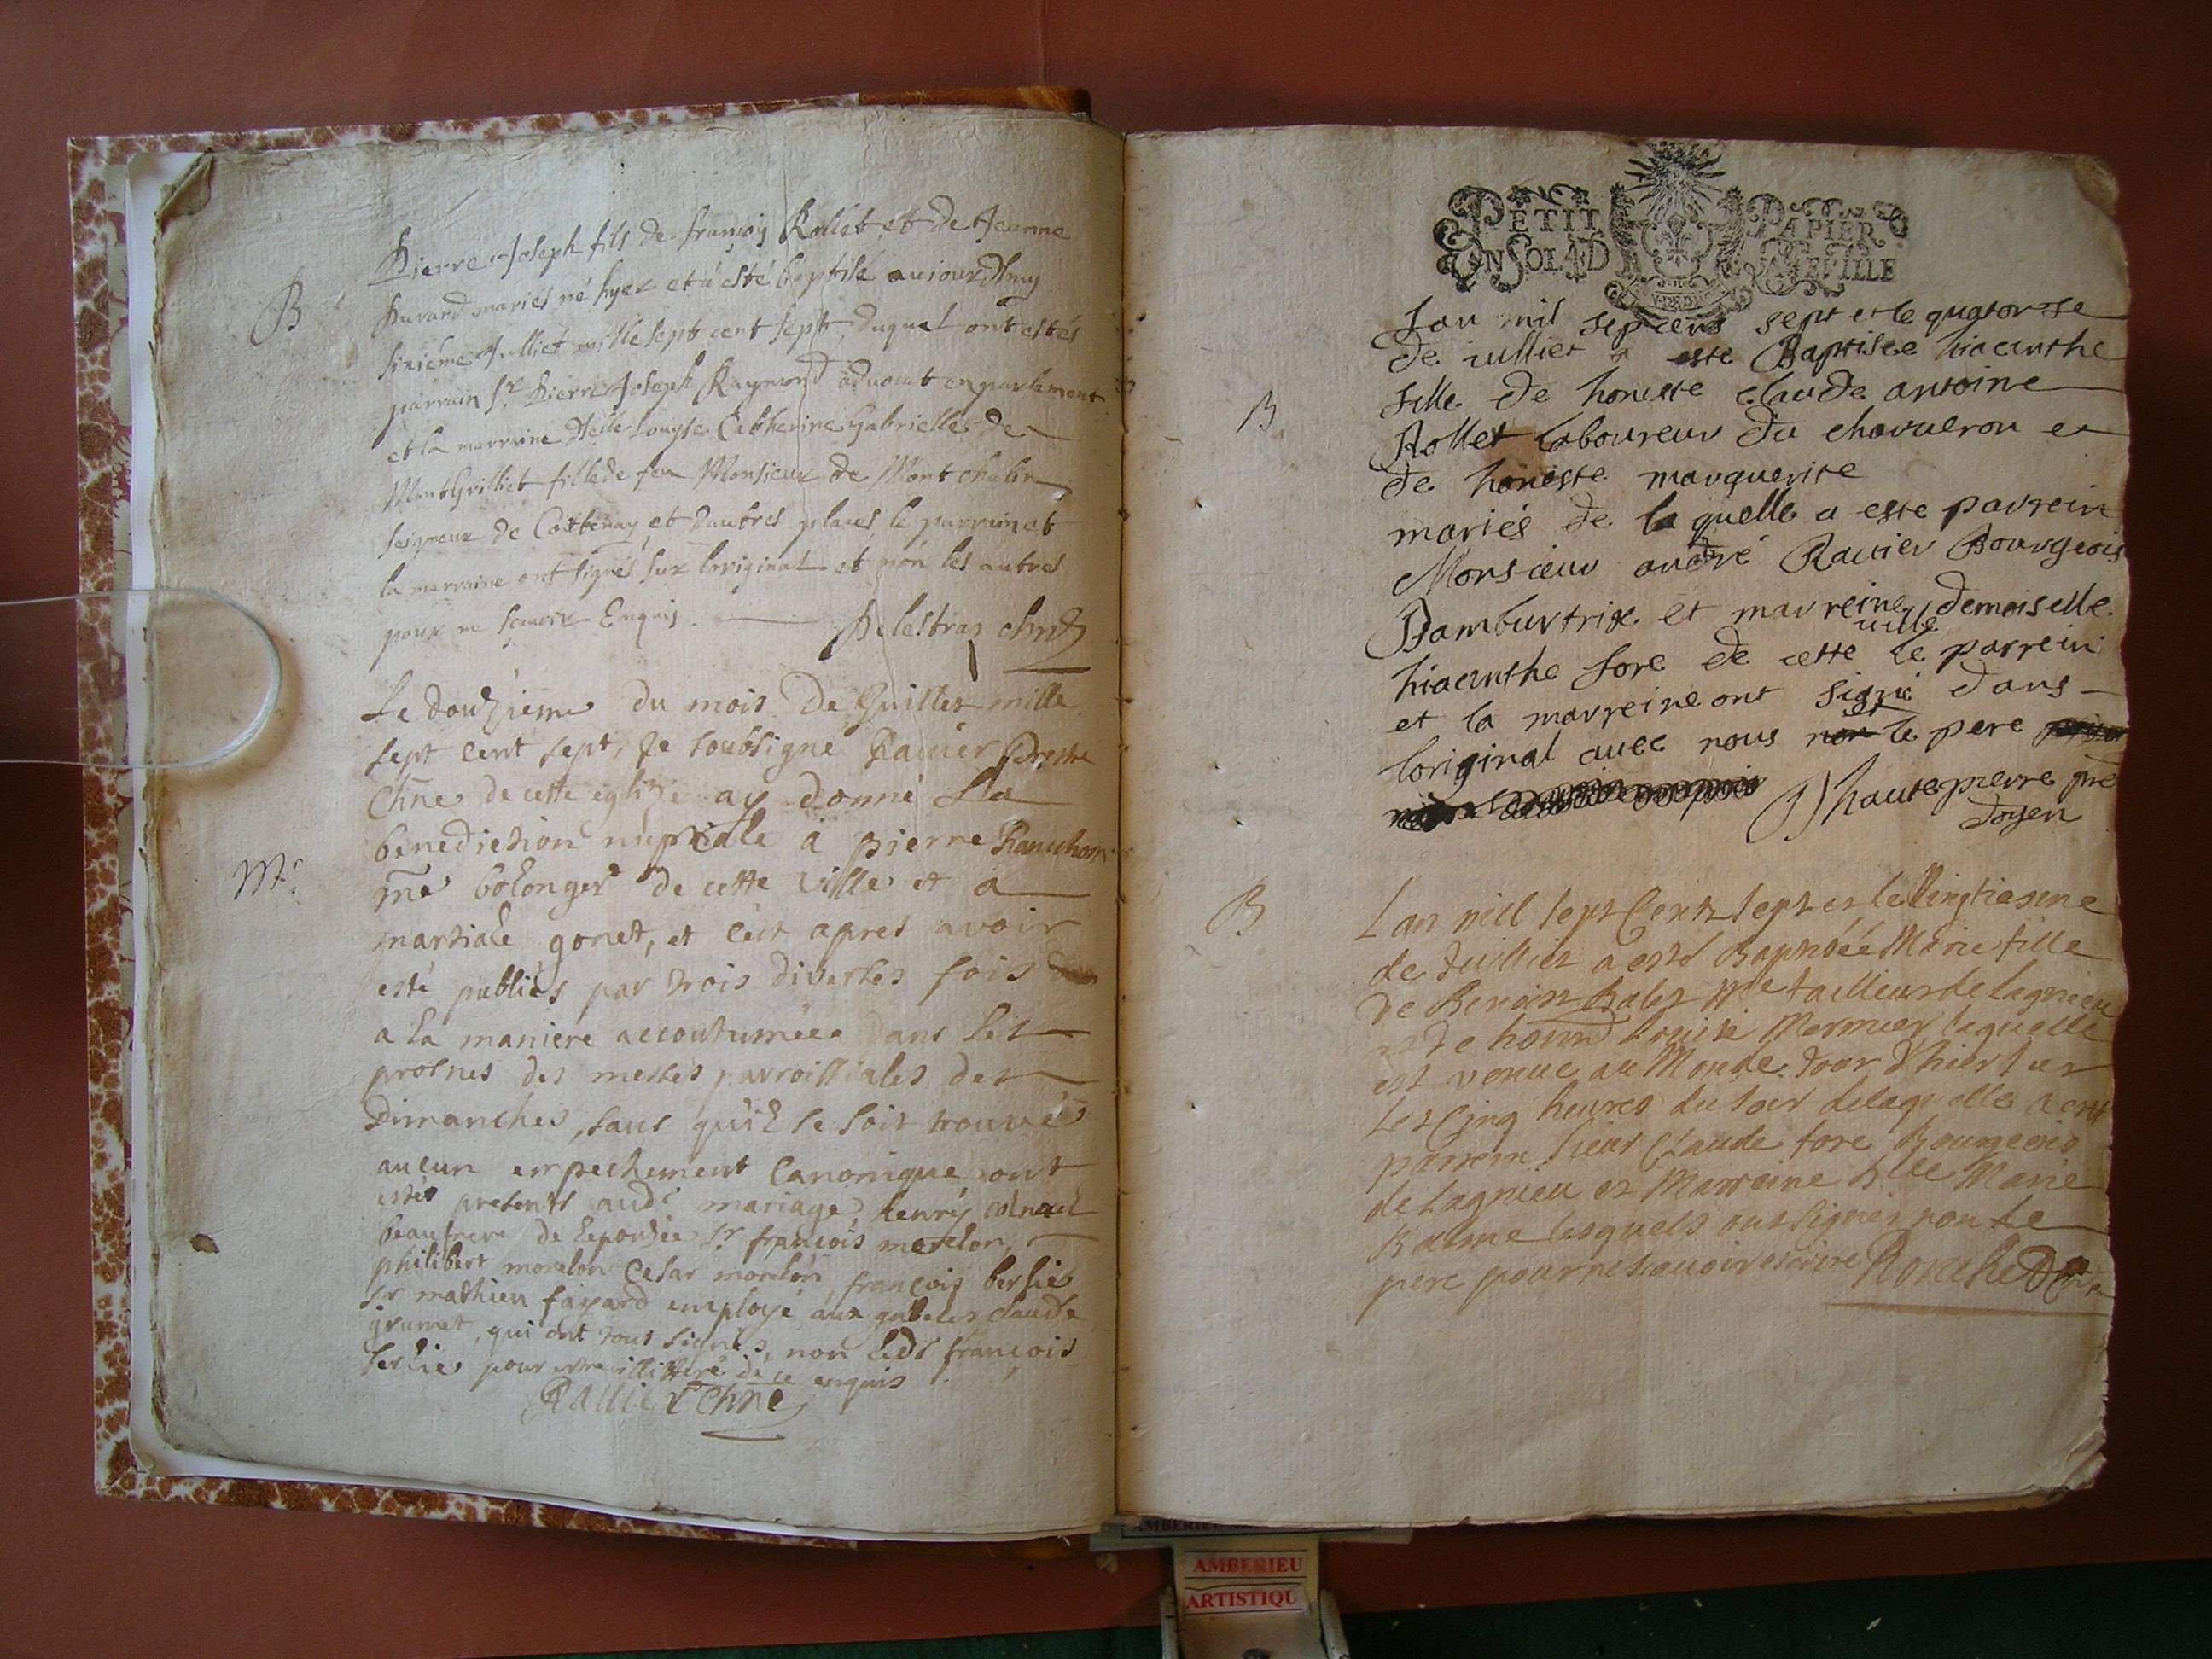 Pierre Joseph fils de françois Rollet et de Jeanne
B
Duvard mariés né hyer et a esté baptisé aujourdhuy
sixiéme Julliet mille sept cent sept, duquel ont estés
parrain Sr. Pierre Joseph Raymond advocat en parlement
et la marraine Delle Louyse Catherine Gabrielle de
fille de feu Monsieur de Montchalin
seigneur de et dautres places, le parrain et
la marraine ont signés sur loriginal et non les autres
pour ne sçavoir Enquis.
Le douziem du mois De Juillet mille
sept cent sept, Je soubsigné Ravier Prestre
Chne de cette eglize ay donné La
benediction nuptiale a pierre
Mr.
me bolonger de cette ville et a
martiale gonet, et cest apres avoir
esté publiés par trois diverses fois
a la maniere accoutumeée dans les
prosnes des messes parroissiales des
Dimanches, sans qu'il se soit trouvé
aucun empechement Canonique ont
estés presents audt mariage henry
beaufrere de lepousée Sr françois morelon,
philibert morelon Cesar morelon, françois berlie
Sr mathieu fayard employé aux gabeles claude
grumet, qui ont tous signés, non ledt françois
berlie pour estre illitteré de ce enquis
Ravier Chne
PETIT PAPIER
UN SOL 4D LA FEUILLE
Lan mil septcens sept et le quatorse
de iulliet a esté Baptisée hiacinthe
B
fille de honeste claude antoine
Rollet laboureur du chavueron et
de honeste marguerite
mariés de la quelle a este parrein
Monsieur andré Ravier Bourgeois
Dambutrix et marreine demoiselle
ville
hiacinthe fore de cette le parrein
et la marreine ont signé dans
et
loriginal avec nous non le pere
hautepierre pre
doyen
B
Lan mill sept Cents sept et le Vingtiesme
de Juillier a esté Baptisée Marie fille
de Benoist Balet Me tailleur de Lagnieu
et de honnd Louise Mermier, laquelle
est venue au Monde Jour d'hier sur
les Cinq heures du soir delaquelle a esté
parrein sieur Claude fore Bourgeois
de Lagnieu et Marreine Dlle Marie
Balme lesquels ont signés non le
pere pour ne scavoir escrire
AMBERIEU
ARTISTIQU